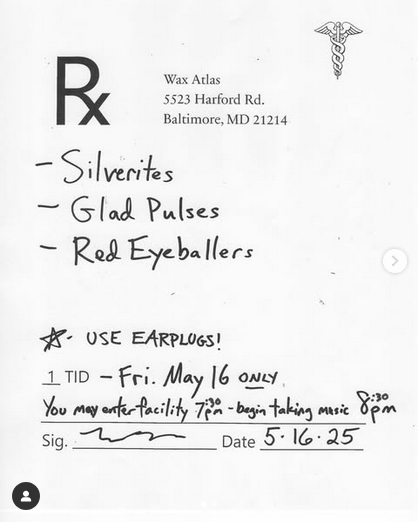 Rx
Wax Atlas
5523 Harford Rd.
Baltimore, MD 21214
- Silverites
- Glad Pulses
- Red Eyeballers
☆- USE EARPLUGS!
1 TID - Fri. May 16 ONLY.
You may enter facility 7:30pm - begin taking music 8:30pm
Sig. Date 5·16·25